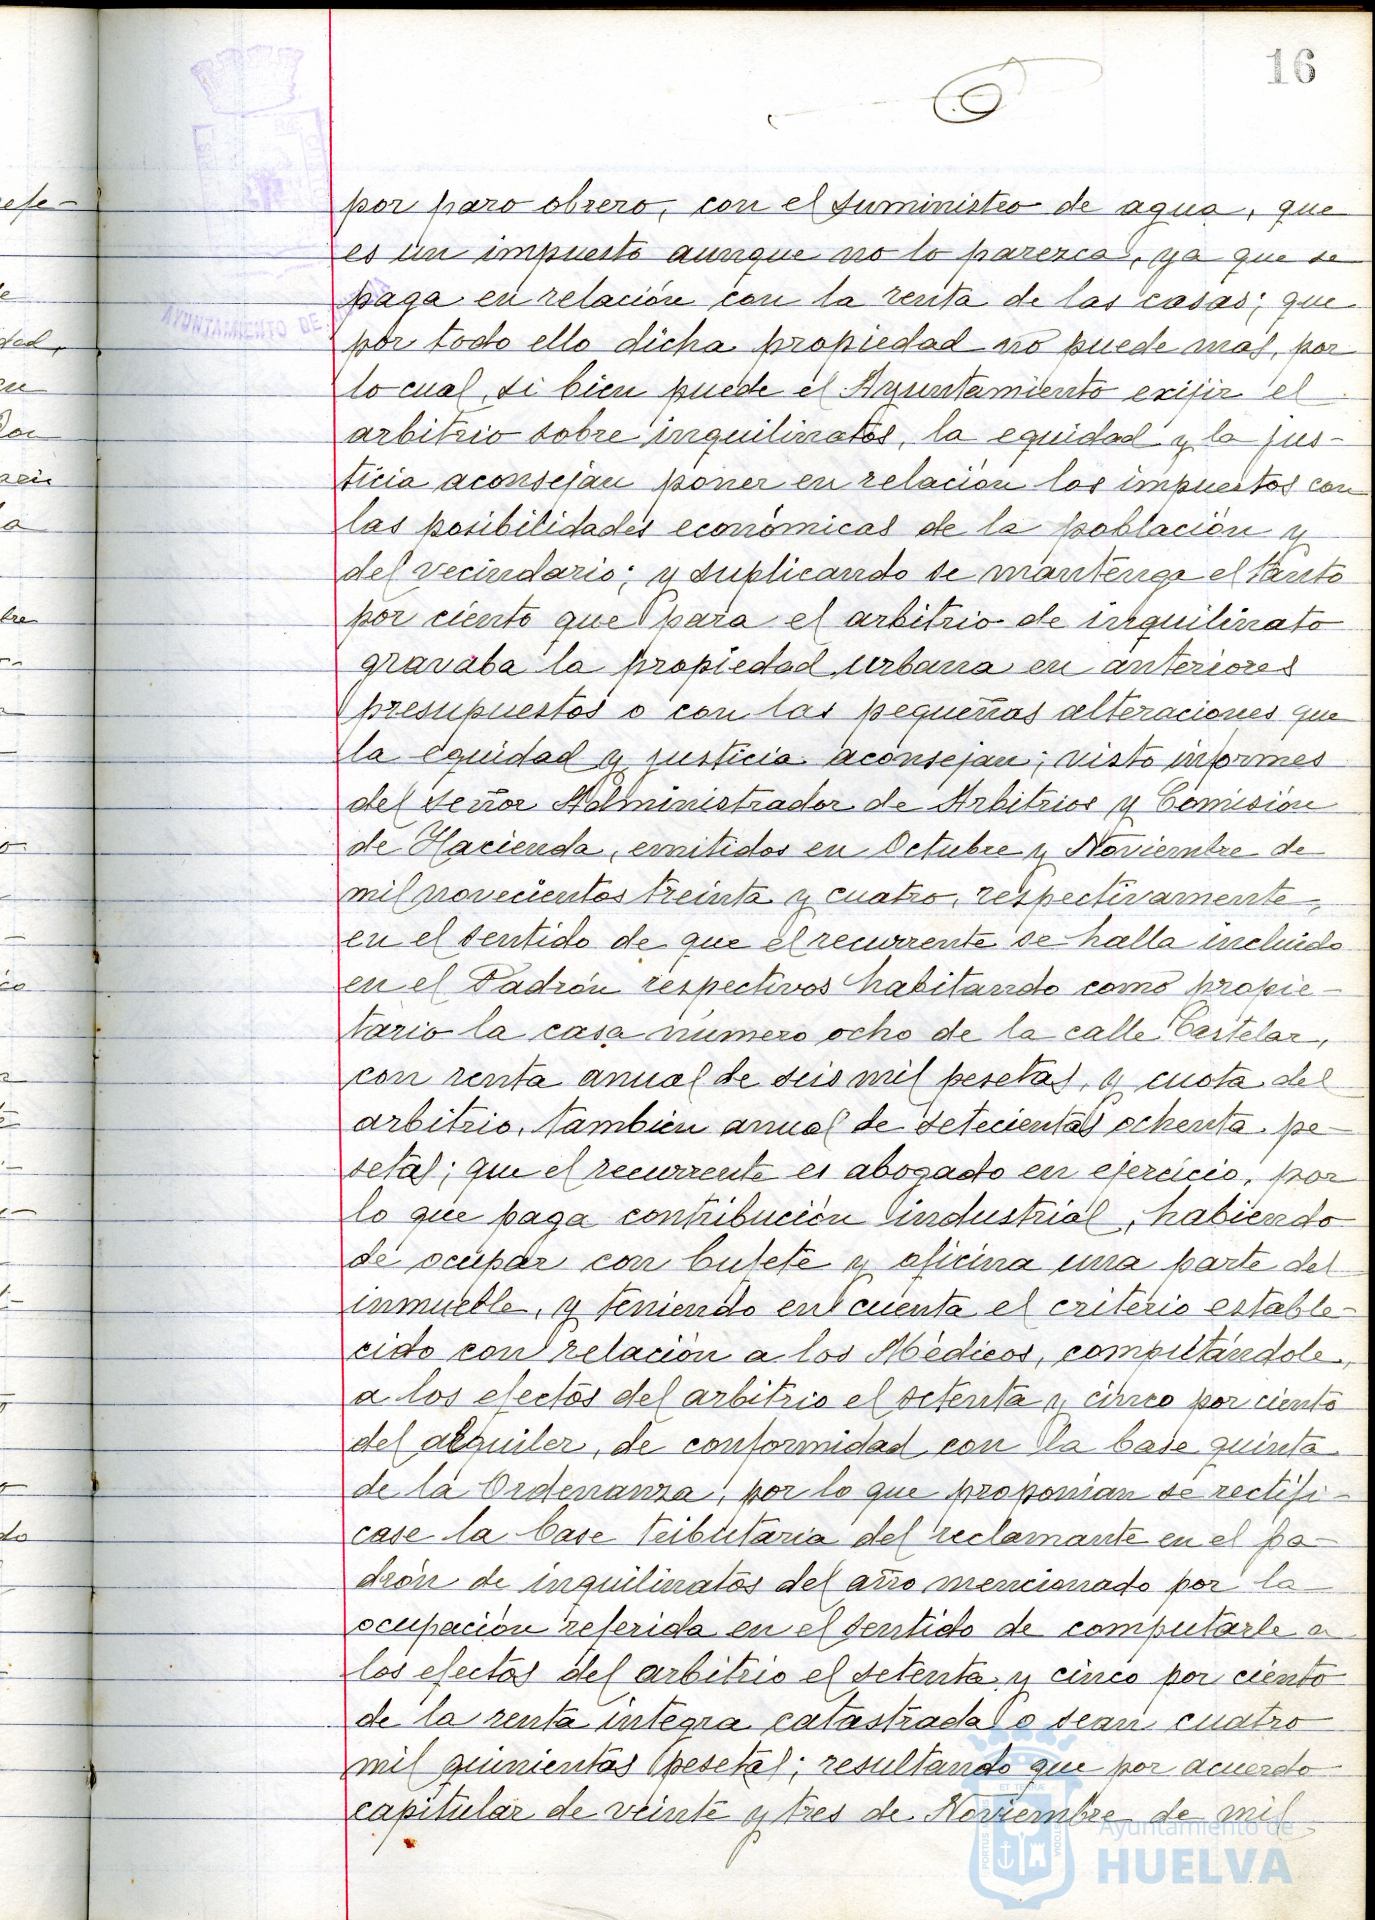 16
por paro obrero, con el suministro de agua, que
es un impuesto aunque no lo parezca, ya que se
paga en relación con la renta de las casas; que
por todo ello dicha propiedad no puede mas, por
lo cual, si bien puede el Ayuntamiento exijir el
arbitrio sobre inquilinatos, la equidad y la jus-
ticia aconsejan poner en relación los impuestos con
las posibilidades económicas de la población y
del vecindario; y suplicando se mantenga el tanto
por ciento que para el arbitrio de inquilinato
gravaba la propiedad urbana en anteriores
presupuestos o con las pequeñas alteraciones que
la equidad y justicia aconsejan; visto informes
del señor Administrador de Arbitrios y Comisión
de Hacienda, emitidos en Octubre y Noviembre de
mil novecientos treinta y cuatro, respectivamente,
en el sentido de que el recurrente se halla incluido
en el Padrón respectivos habitando como propie-
tario la casa número ocho de la calle Castelar,
con renta anual de seis mil pesetas, y cuota del
arbitrio, tambien anual de setecientas ochenta pe-
setas; que el recurrente es abogado en ejercicio, por
lo que paga contribución industrial, habiendo
de ocupar con bufete y oficina una parte del
inmueble, y teniendo en cuenta el criterio estable-
cido con relación a los Médicos, computándole,
a los efectos del arbitrio el setenta y cinco por ciento
del alquiler, de conformidad con la base quinta
de la Ordenanza, por lo que proponían se rectifi-
case la base tributaria del reclamante en el pa-
drón de inquilinatos del año mencionado por la
ocupación referida en el sentido de computarle a
los efectos del arbitrio el setenta y cinco por ciento
de la renta íntegra catastrada o sean cuatro
mil quinientas pesetas; resultando que por acuerdo
capitular de veinte y tres de Noviembre de mil
AYUNTAMIENTO DE
Ayuntamiento de
HUELVA